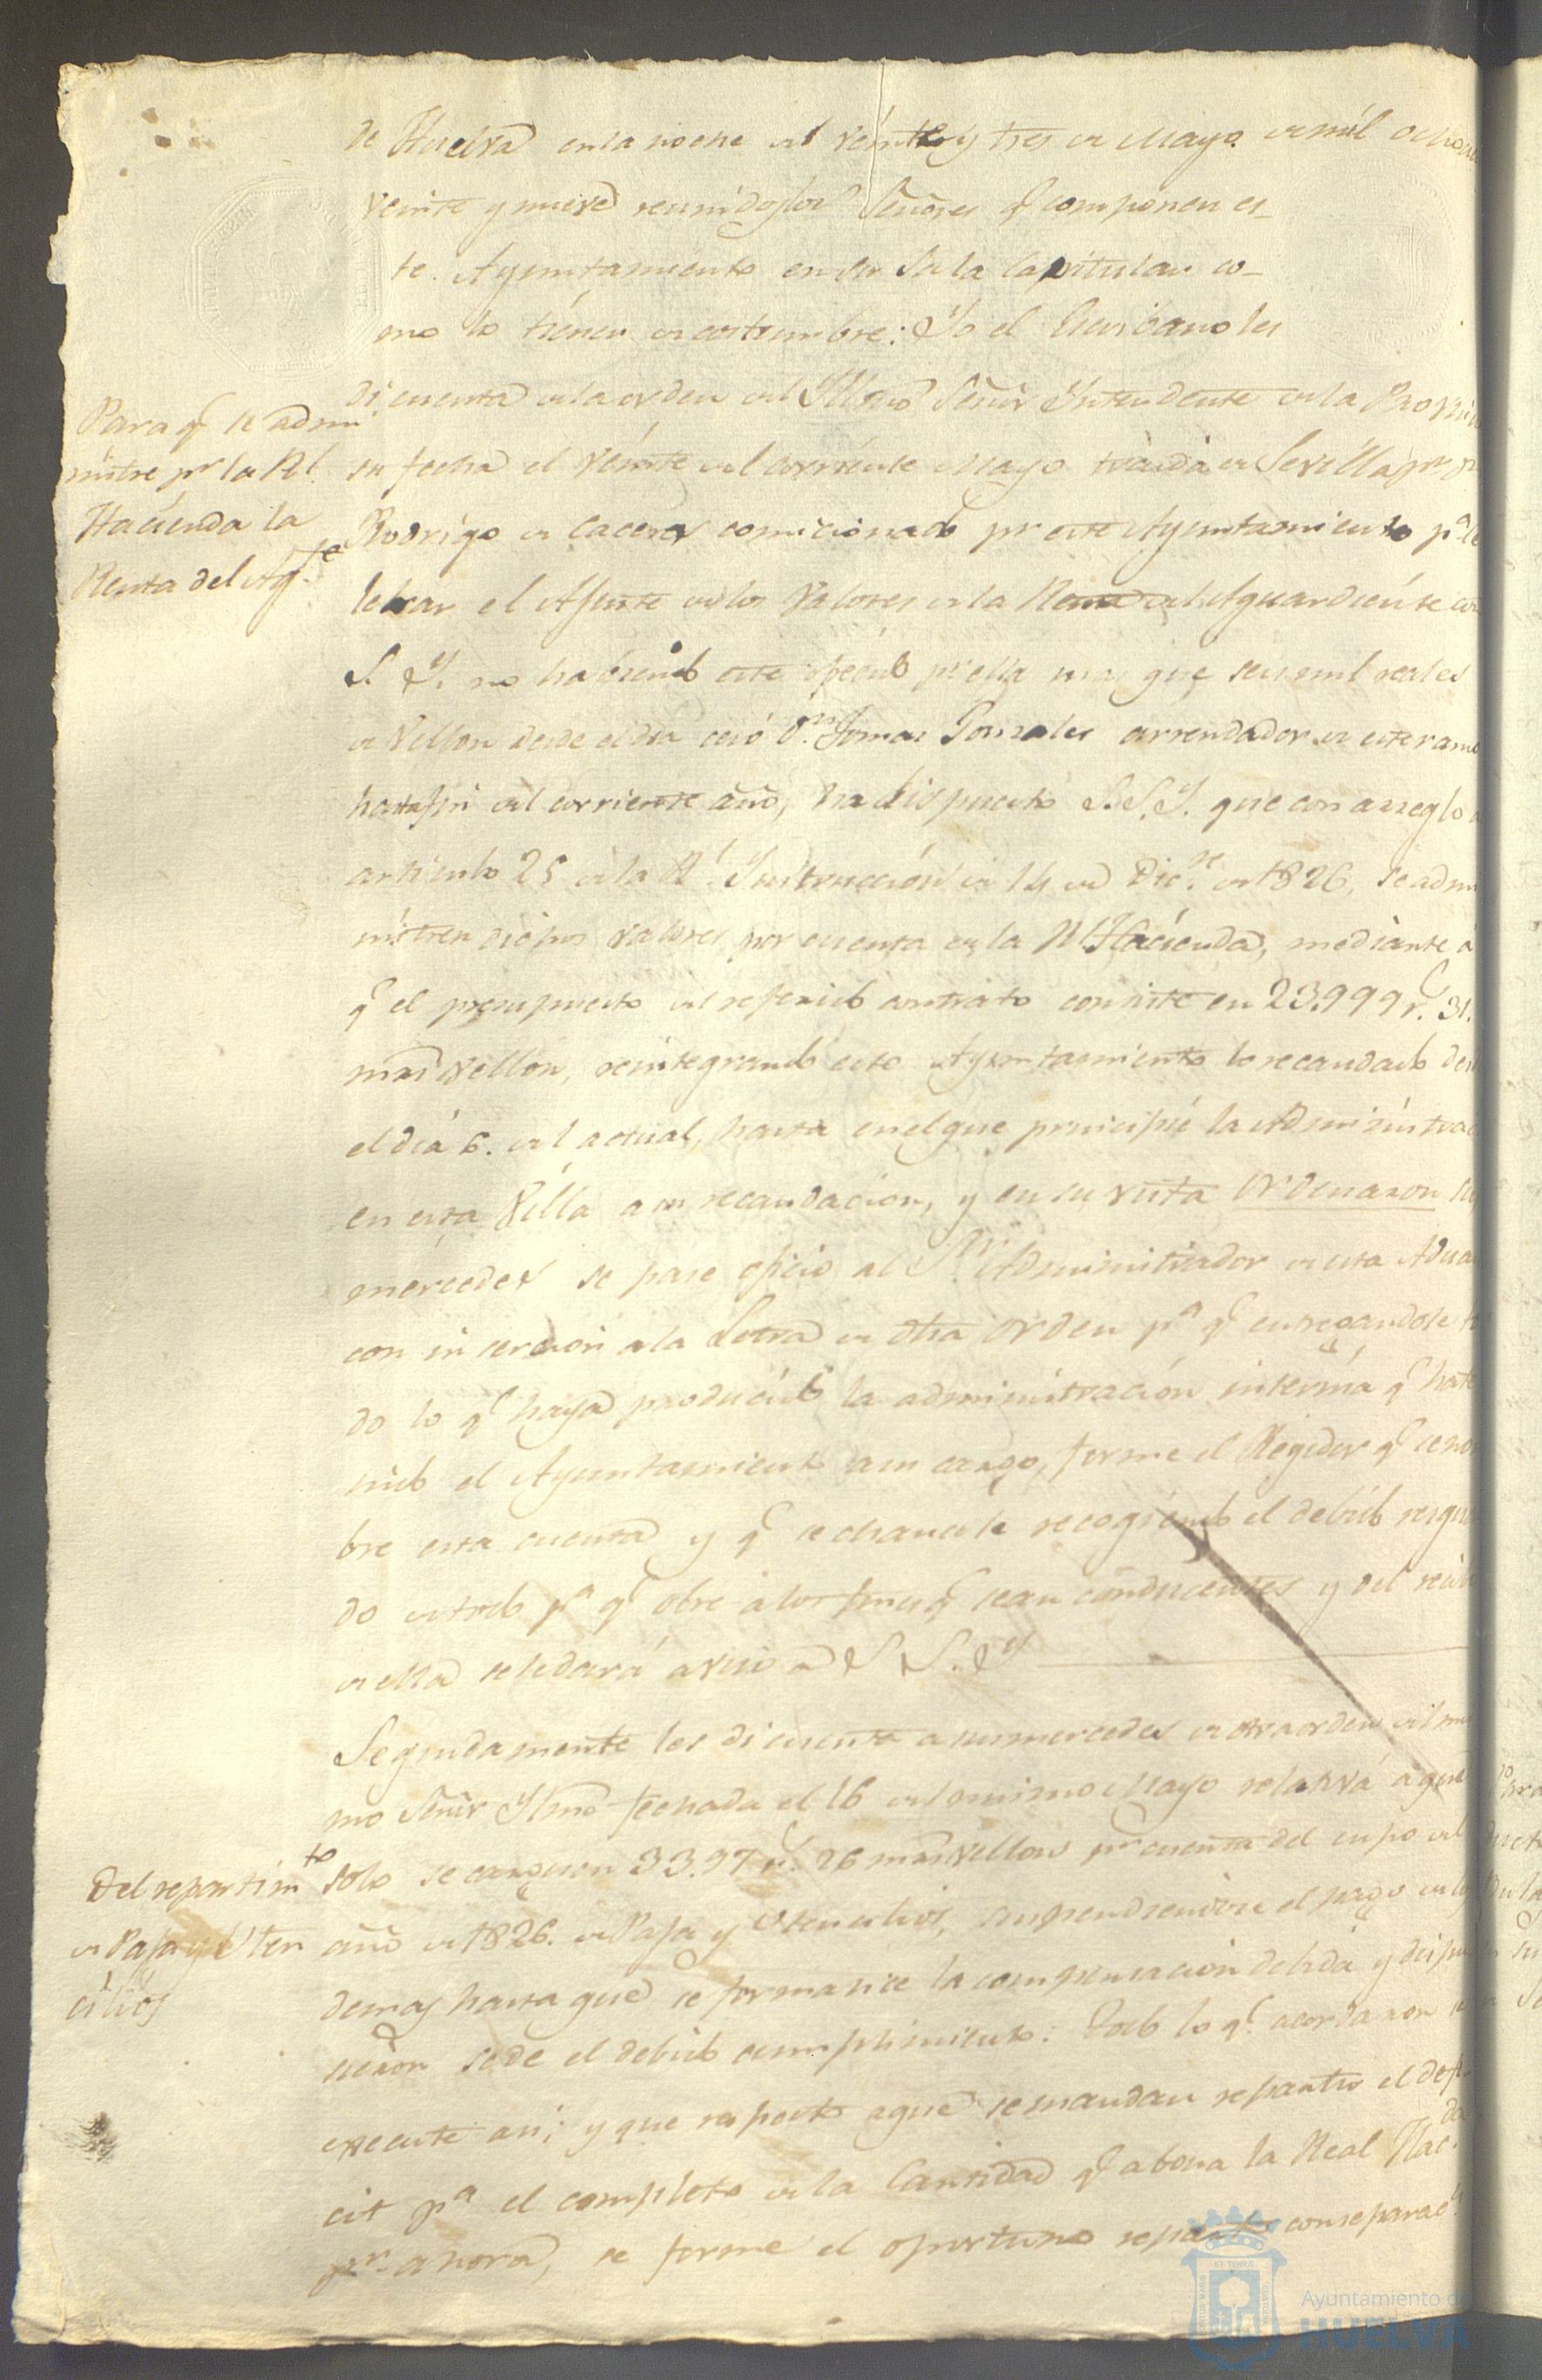 de Huelva en la noche del veinte y tres de Mayo de mil ocho
veinte y nueve reunidos los Señores q.e componen es-
te Ayuntamiento en su Sala Capitular co-
mo lo tienen de costumbre: Yo el Escribano les
di cuenta de la orden del Yllmo Señor Yntendente de la Provin
su fecha el veinte del corriente Mayo traida de Sevilla pr
Rodrigo de Caceres comicionado pr este Ayuntamiento pa
lebrar el Ajuste de los Valores de la Renta del Aguardiente con
S. Y. no habiendo este ofrecido pr ella mas que seis mil reales
de Vellon desde el dia cesó Dn Tomas Gonzales arrendador de este ramo
hasta fin del corriente año, ha dispuesto S.S.Y. que con arreglo
articulo 25 de la Rl Ynstruccion de 14 de Dice de 1826, se admi
nistren dichos valores por cuenta de la Rl Hacienda, mediante a
q.e el presupuesto del referido contrato consiste en 23.999 rs 31.
mrs vellon, reintegrando este Ayuntamiento lo recaudado des
el dia 6. del actual, hasta en el que principie la Administrac
en esta Villa a su recaudacion, y en su vista Ordenaron sus
mercedes se pase oficio al Sor Administrador de esta Adua
con insercion a la Letra de dha orden pa qe entregandole to
do lo qe haya producido la administración interina qe ha te
nido el Ayuntamiento a su cargo, forme el Regidor qe se no
bre esta cuenta y qe se chancele recogiendo el debido resgua
do de todo pa qe obre a los fines qe sean conducentes y del recivo
de ella se le dará aviso a S. S. Y.
Segundamente les di cuenta a sus mercedes de otra orden del mis
mo Señor Yllmo fechada el 16 del mismo Mayo relativa a que
solo se carguen 33.97 rs 26 mrs vellon pr cuenta del cupo del
año de 1826. de Paja y Utencilios, suspendiendose el pago de lo
demas hasta que se formalice la compensacion debida y dispu
sieron se de el debido cumplimiento: Todo lo qe acordaron se
execute asi; y que respecto a que se mandan repartir el defi
cit pa el completo de la Cantidad qe abona la Real Hacda
pr ahora, se forme el oportuno reparto con separacn
Para qe se admi
nistre pr la Rl
Hacienda la
Renta del Agte
Del repartimto
de Paja y Uten
cilios
Ayuntamiento de
HUELVA